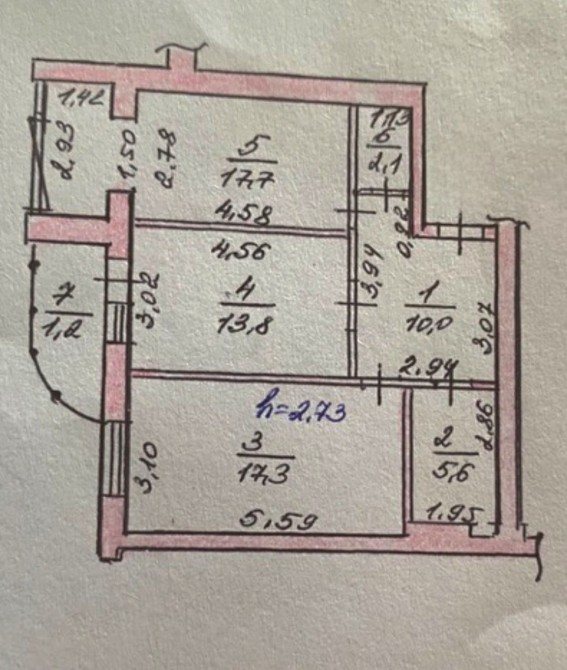 1,42
2,93
1,50
2,78
5
17,7
4,58
1,13
6
2,1
0,82
4,56
4
13,8
3,02
3,94
1
10,0
3,07
2.94
7
1,2
h=2,73
3
17,3
3,10
5,59
2
5,6
2,86
1.95